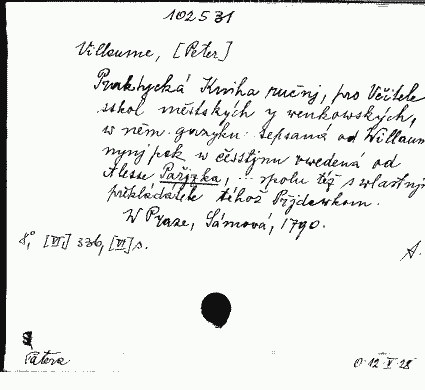 102531
Villaume, [Peter]
Praktycká Kniha ručnj, pro Včitele
sskol městských y wenkowských,
w něm. gazyku sepsaná od Willaum
nynj pak w česstjnu vwedená od
Alexe Pařjzka, ... spolu též s wlastnjm
překladatele téhož Přjdawkem.
W Praze, Sámová, 1790.
8°, [VI] 336, [VI] s.
A.
Patera
O. 12 V 28